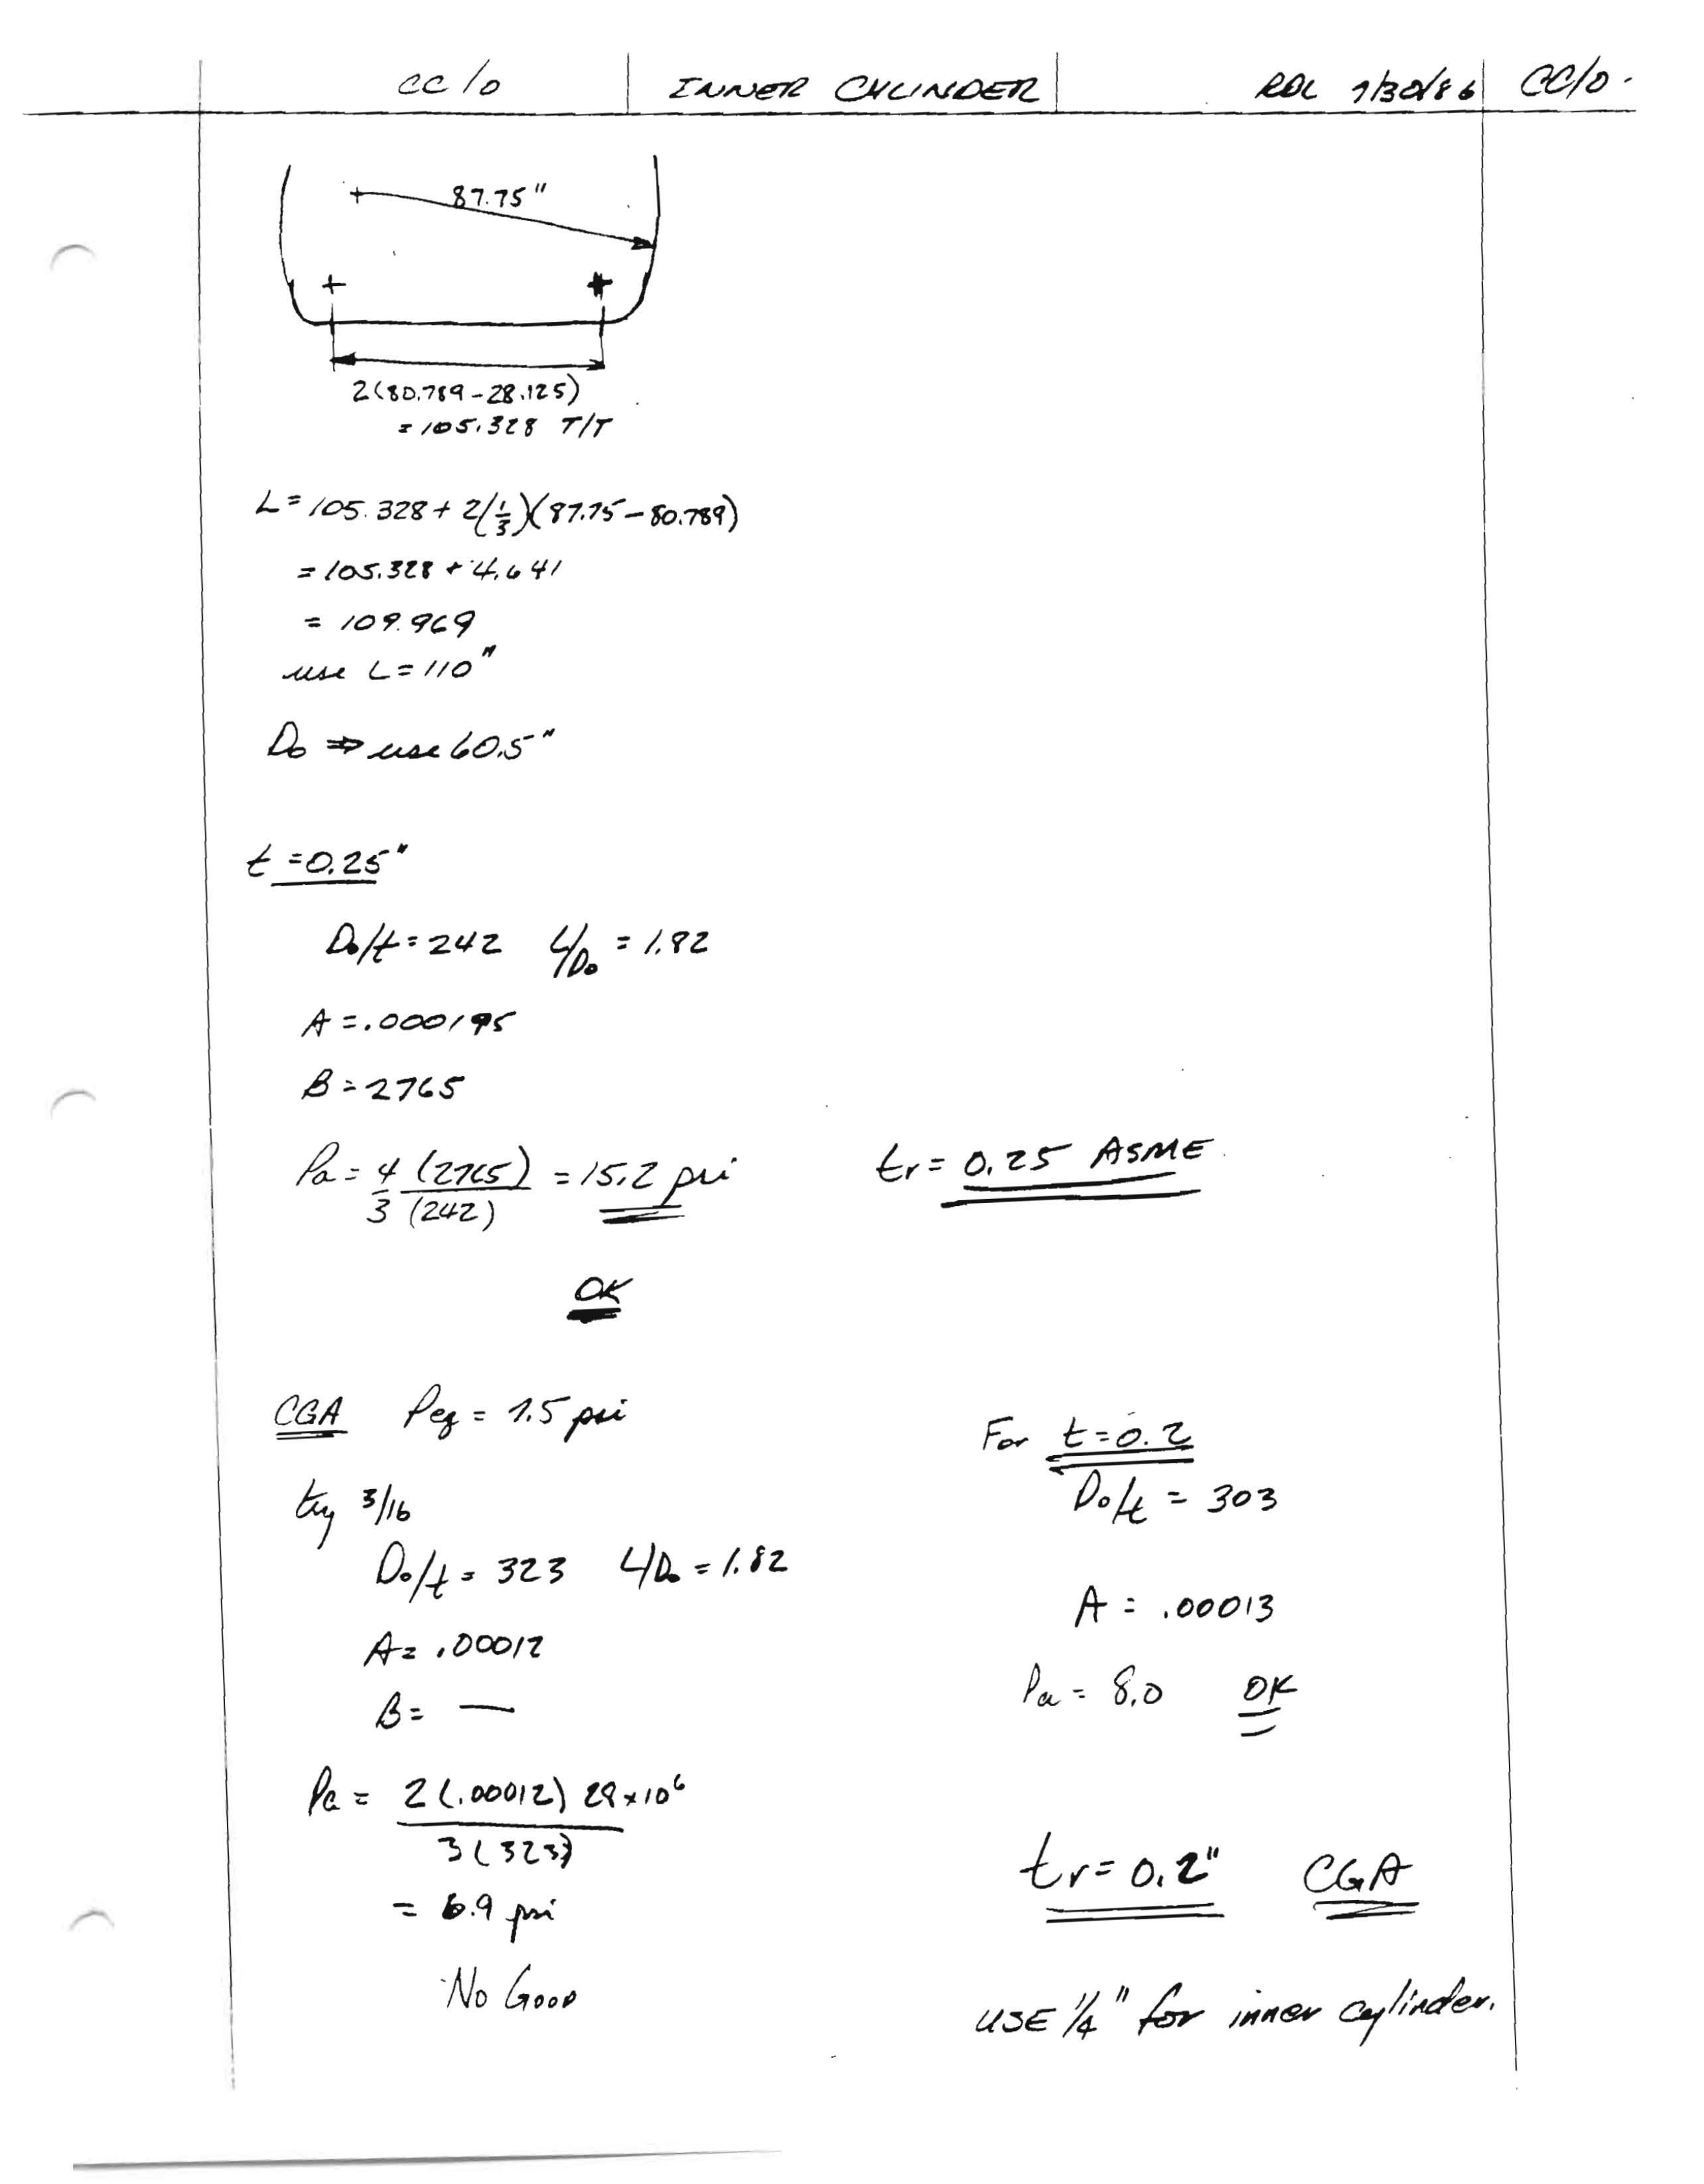 CC/O INNER CYLINDER RDL 7/30/86 CC/O.
87.75"
2(80.789-28.125)
= 105.328 T/T
L = 105.328 + 2(1/3)(87.75-80.789)
= 105.328 + 4.641
= 109.969
use L = 110"
Do ⇒ use 60.5"
t = 0.25"
Do/t = 242 L/Do = 1.82
A = .000195
B = 2765
Pa = 4/3 (2765)/(242) = 15.2 psi
tr = 0.25 ASME
OK
CGA Peg = 7.5 psi
try 3/16
Do/t = 323 L/Do = 1.82
A = .00012
B = —
Pa = 2(.00012) 28×10^6 / 3(323)
= 6.9 psi
No Good
For t = 0.2
Do/t = 303
A = .00013
Pa = 8.0 OK
tr = 0.2" CGA
USE 1/4" for inner cylinder.